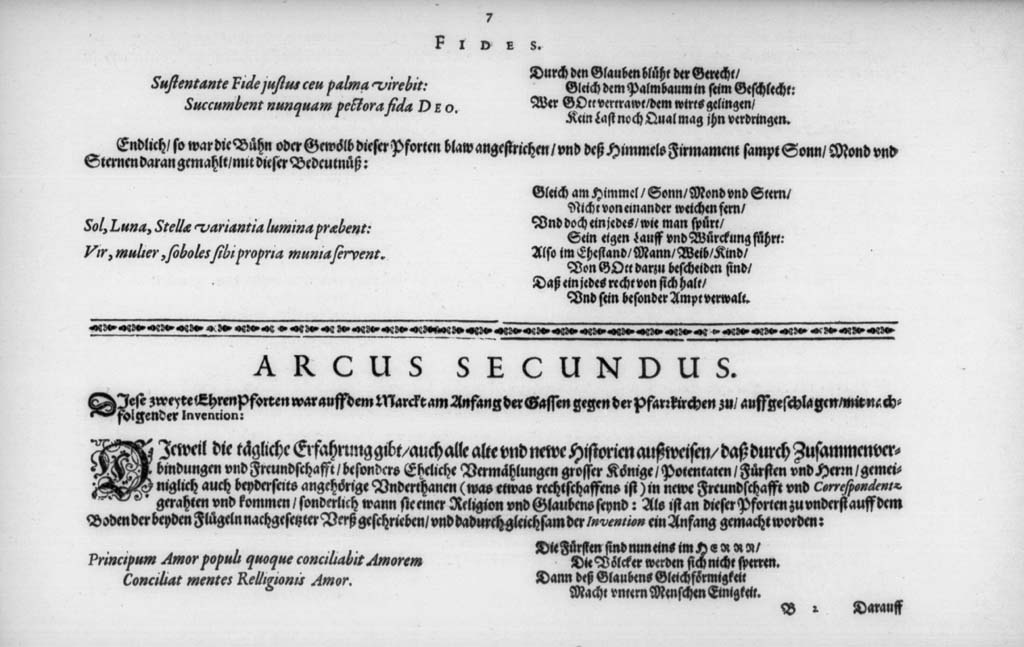 7
FIDES.
Sustentante Fide justus ceu palma virebit:
Succumbent nunquam pectora fida DEO.
Durch den Glauben blüht der Gerecht/
Gleich dem Palmbaum in seim Geschlecht:
Wer GOtt vertrawt/dem wirts gelingen/
Kein Last noch Qual mag jhn verdringen.
Endlich/ so war die Bühn oder Gewölb dieser Pforten blaw angestrichen/ vnd deß Himmels Firmament sampt Sonn/ Mond vnd
Sternen daran gemahlt/mit dieser Bedeutnüß:
Sol, Luna, Stellæ variantia lumina præbent:
Vir, mulier, soboles sibi propria munia servent.
Gleich am Himmel/ Sonn/ Mond vnd Stern/
Nicht von einander weichen fern/
Vnd doch ein jedes/ wie man spürt/
Sein eigen Lauff vnd Würckung führt:
Also im Ehestand/ Mann/ Weib/ Kind/
Von GOtt darzu bescheiden sind/
Daß ein jedes recht von sich halt/
Vnd sein besonder Ampt verwalt.
ARCUS SECUNDUS.
DJese zweyte EhrenPforten war auff dem Marckt am Anfang der Gassen gegen der Pfarrkirchen zu/ auffgeschlagen/mit nach-
folgender Invention:
DJeweil die tägliche Erfahrung gibt/ auch alle alte vnd newe Historien außweisen/ daß durch Zusammenver-
bindungen vnd Freundschafft/ besonders Eheliche Vermählungen grosser Könige/ Potentaten/ Fürsten vnd Herrn/ gemei-
niglich auch beyderseits angehörige Vnderthanen (was etwas rechtschaffens ist) in newe Freundschafft vnd Correspondentz
gerahten vnd kommen/ sonderlich wann sie einer Religion vnd Glaubens seynd: Als ist an dieser Pforten zu vnderst auff dem
Boden der beyden Flügeln nachgesetzter Verß geschrieben/ vnd dadurch gleichsam der Invention ein Anfang gemacht worden:
Principum Amor populi quoque conciliabit Amorem
Conciliat mentes Relligionis Amor.
Die Fürsten sind nun eins im HERRN/
Die Völcker werden sich nicht sperren.
Dann deß Glaubens Gleichförmigkeit
Macht vntern Menschen Einigkeit.
B 2 Darauff